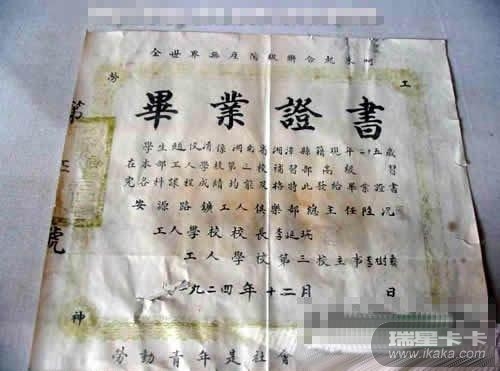 全世界無產階級聯合起來呵
勞 工
畢業證書
第
號
學生趙汶清係湖南省湘潭縣籍現年二十五歲
在本部工人學校第三校補習部高級 習
完各科課程成績均能及格特此發給畢業證書
安源路鑛工人俱樂部總主任陸沉
工人學校校長李延瑞
工人學校第三校主事李樹
一九二四年十二月 日
神
勞動青年是社會
瑞星卡卡
www.ikaka.com